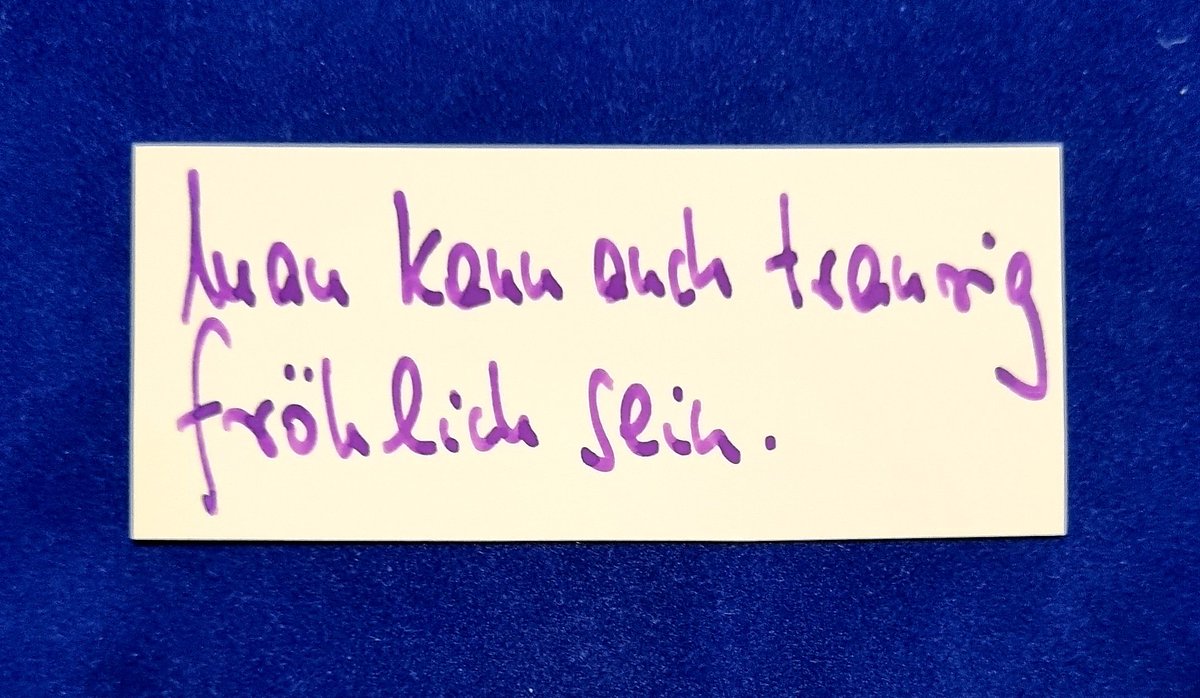 Man kann auch traurig
fröhlich sein.